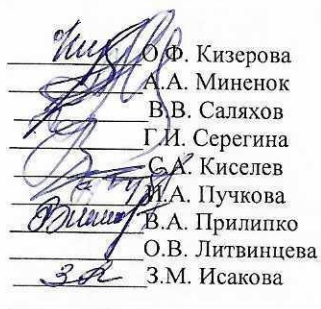 О.Ф. Кизерова
А.А. Миненок
В.В. Саляхов
Г.И. Серегина
С.А. Киселев
И.А. Пучкова
В.А. Прилипко
О.В. Литвинцева
З.М. Исакова